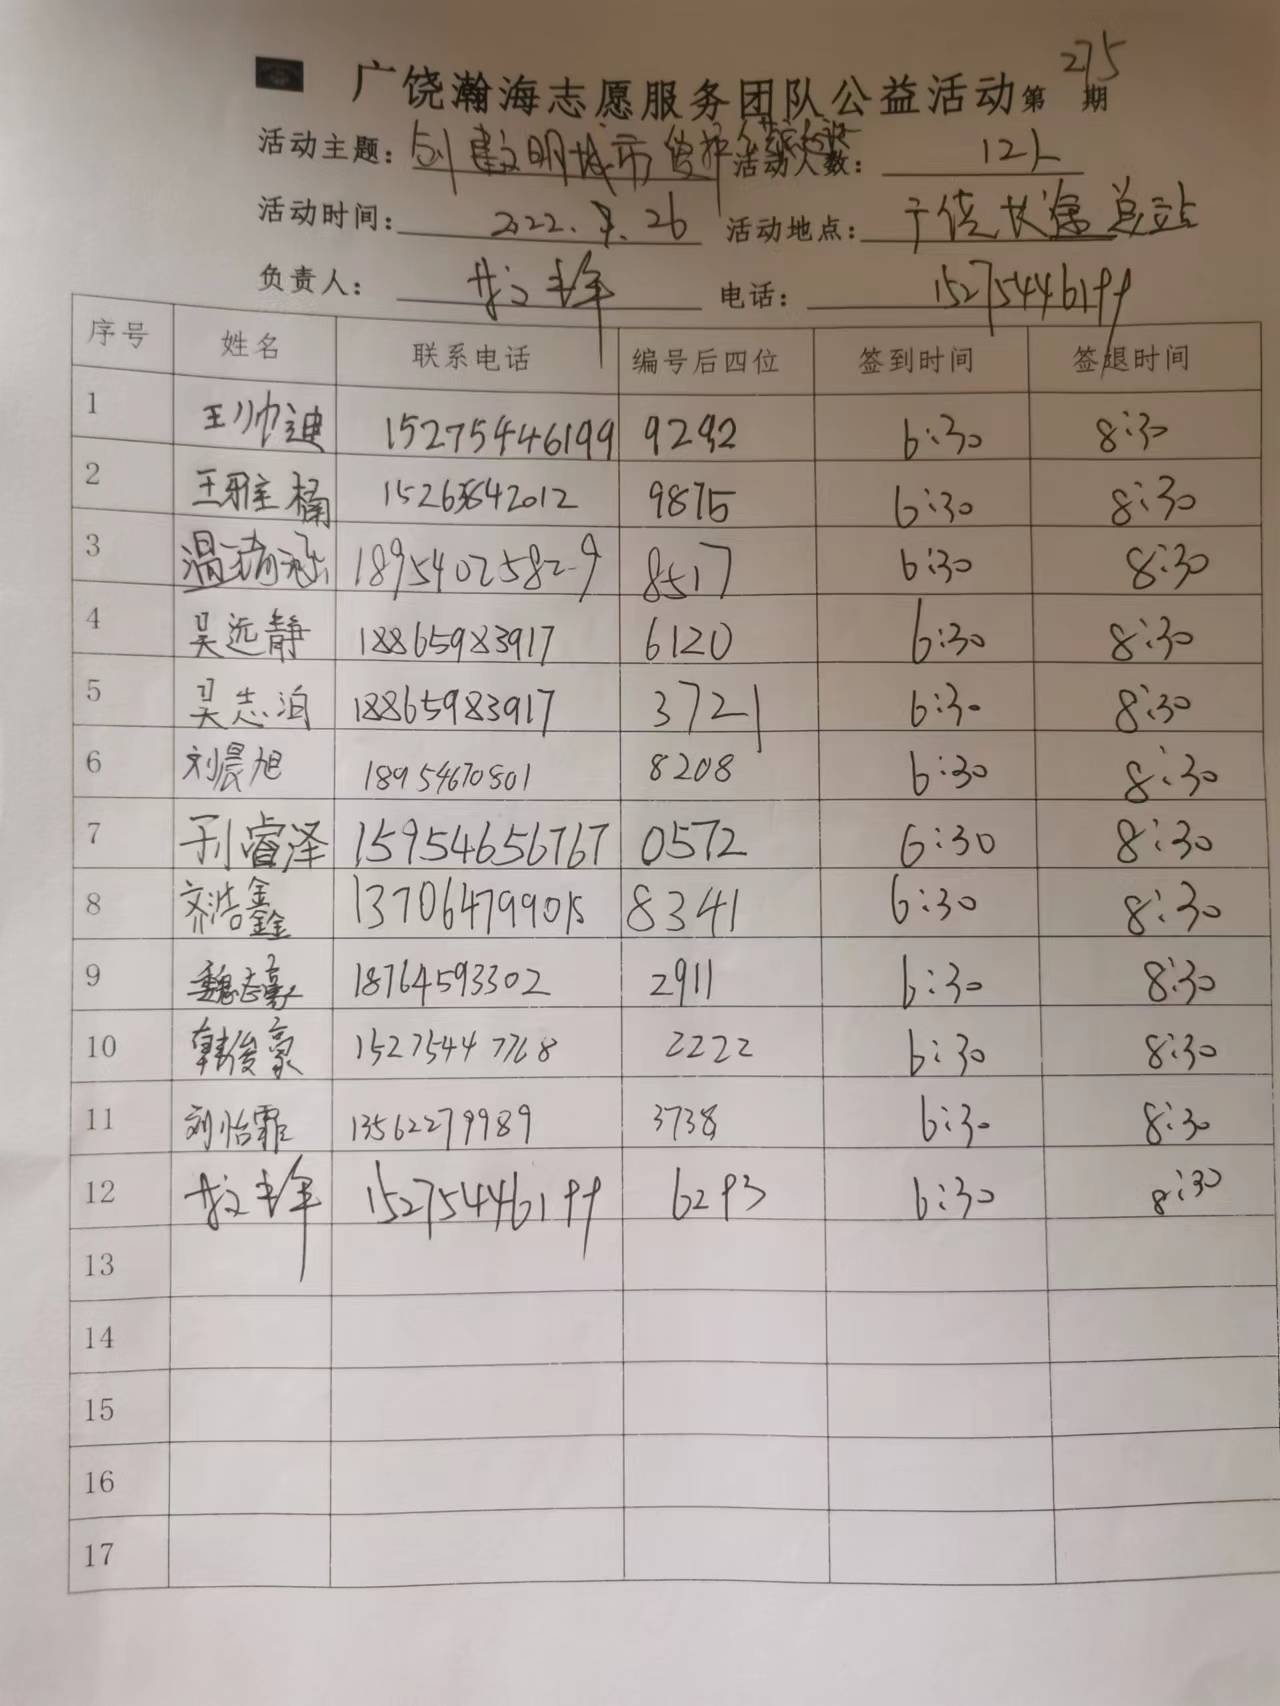 广饶瀚海志愿服务团队公益活动第275期
活动主题:创建文明城市 活动人数:12人
活动时间:2022. .26 活动地点:广饶长途总站
负责人: 电话:15275446199
序号 姓名 联系电话 编号后四位 签到时间 签退时间
1 王帅迪 15275446199 9292 6:30 8:30
2 王雅楠 9875 6:30 8:30
3 温 涵 18954025829 8517 6:30 8:30
4 吴远静 18865983917 6120 6:30 8:30
5 吴志泊 18865983917 3721 6:30 8:30
6 刘晨旭 18954670801 8208 6:30 8:30
7 刘睿泽 15954656767 0572 6:30 8:30
8 齐浩鑫 8341 6:30 8:30
9 魏志豪 18764593302 2911 6:30 8:30
10 韩俊豪 15275447768 2222 6:30 8:30
11 刘怡霏 13562279989 3738 6:30 8:30
12 15275446199 6293 6:30 8:30
13
14
15
16
17